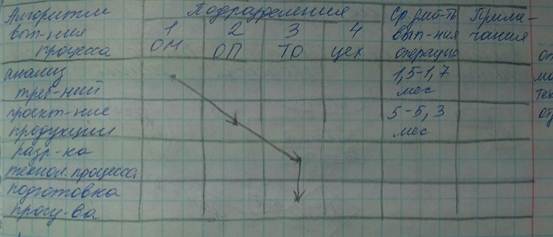 Алгоритм Подразделения Ср. знач-ть Приме-
вып-ния 1 2 3 4 вып-ния чания
процесса ОМ ОП ТО цех операции
анализ 1,5-1,7
треб-ний мес
проект-ние 5-5,3
продукции мес
разр-ка
технол. процесса
подготовка
пр-ва